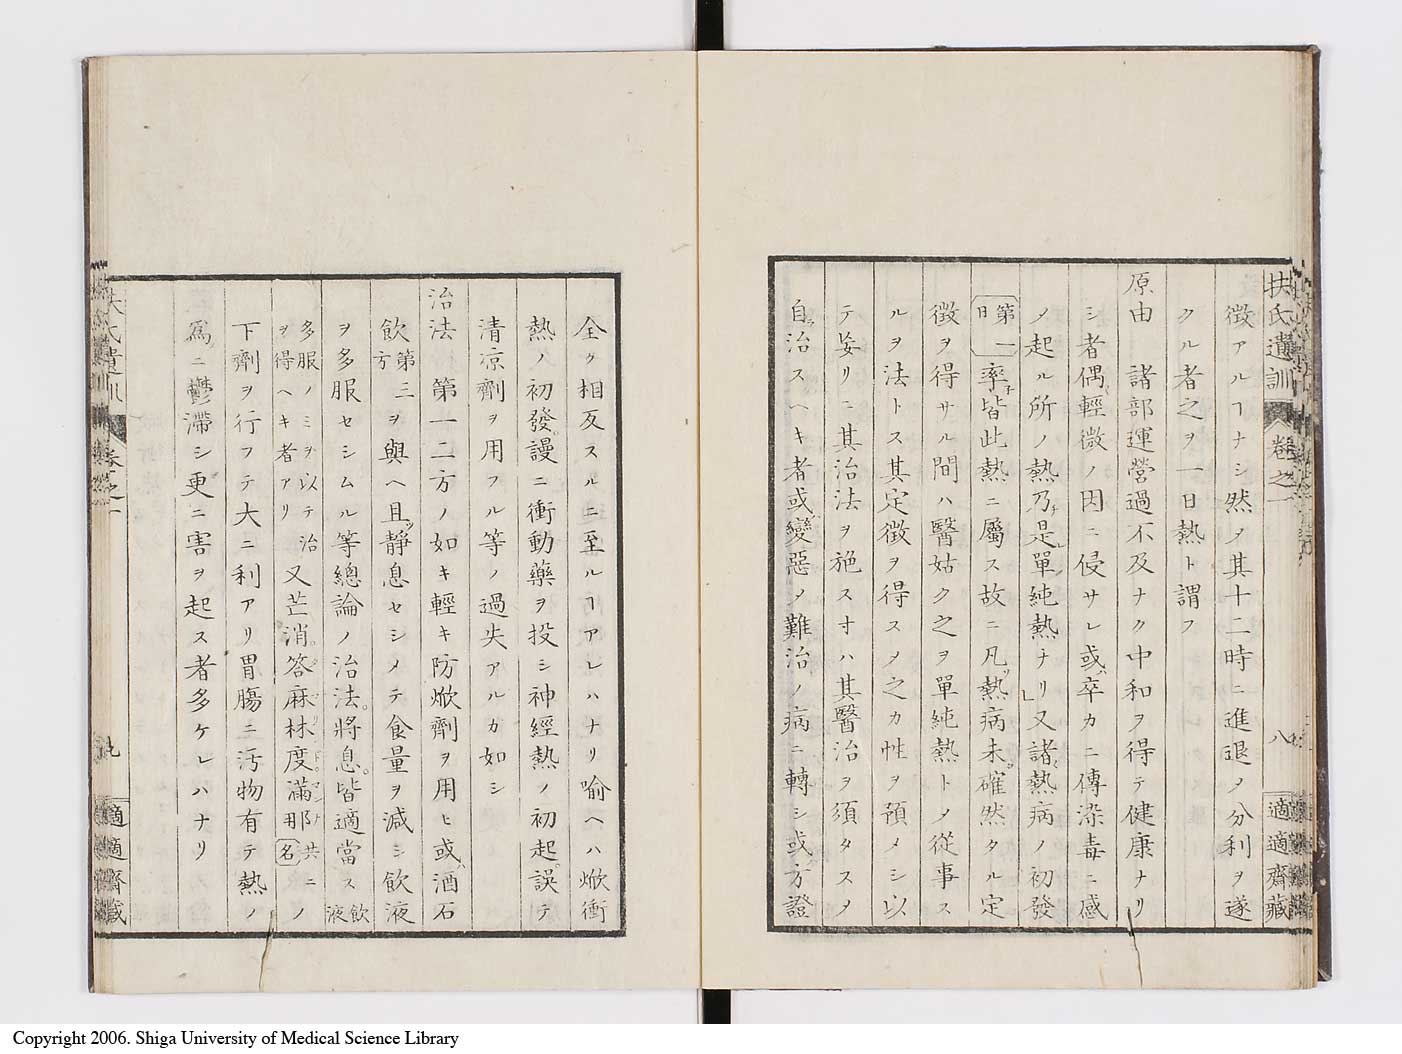 扶氏遺訓 卷之一 八 適適齋藏
徴アルヿナシ然メ其十二時ニ進退メ分利ヲ遂
クル者之ヲ一日熱ト謂フ
原由 諸部運營過不及ナク中和ヲ得テ健康ナリ
シ者偶輕微ノ因ニ侵サレ或卒カニ傳染毒ニ感
ノ起ル所ノ熱乃チ是レ單純熱ナリ」又諸熱病ノ初發
第一日率子皆此熱ニ屬ス故ニ凡ソ熱病未確然タル定
徴ヲ得サル間ハ醫姑ク之ヲ單純熱トメ從事ス
ルヲ法トス其定徴ヲ得スメ之カ性ヲ預メシ以
テ妄リニ其治法ヲ施スオハ其醫治ヲ須タスメ
自ラ治スヘキ者或變惡メ難治ノ病ニ轉シ或方證
全ク相反スルニ至ルヿアレハナリ喻ヘハ焮衝
熱ノ初發謾ニ衝動藥ヲ投シ神經熱ノ初起誤テ
清凉劑ヲ用フル等ノ過失アルカ如シ
治法 第一二方ノ如キ輕キ防焮劑ヲ用ヒ或酒石
飲第三方ヲ與ヘ且ツ靜息セシメテ食量ヲ減シ飲液
ヲ多服セシムル等總論ノ治法將息皆適當ス飲液
多服ノミヲ以テ治ヲ得ヘキ者アリ又芒消答麻林度滿那共ニ用名ノ
下劑ヲ行フテ大ニ利アリ胃膓ニ汚物有テ熱ノ
爲ニ鬱滯シ更ニ害ヲ起ス者多ケレハナリ
扶氏遺訓 卷之一 九 適適齋藏
Copyright 2006. Shiga University of Medical Science Library